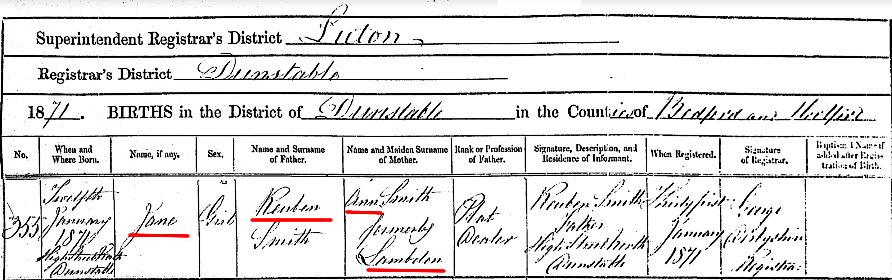 Superintendent Registrar's District Luton
Registrar's District Dunstable
1871. BIRTHS in the District of Dunstable in the Counties of Bedford and Hertford
No. When and Where Born. Name, if any. Sex. Name and Surname of Father. Name and Maiden Surname of Mother. Rank or Profession of Father. Signature, Description, and Residence of Informant. When Registered. Signature of Registrar. Baptismal Name if added after Registration of Birth.
355 Twelfth January 1871 High Street North Dunstable Jane Girl Reuben Smith Ann Smith formerly Lambden Plat Dealer Reuben Smith Father High Street North Dunstable Thirty first January 1871 George Registrar